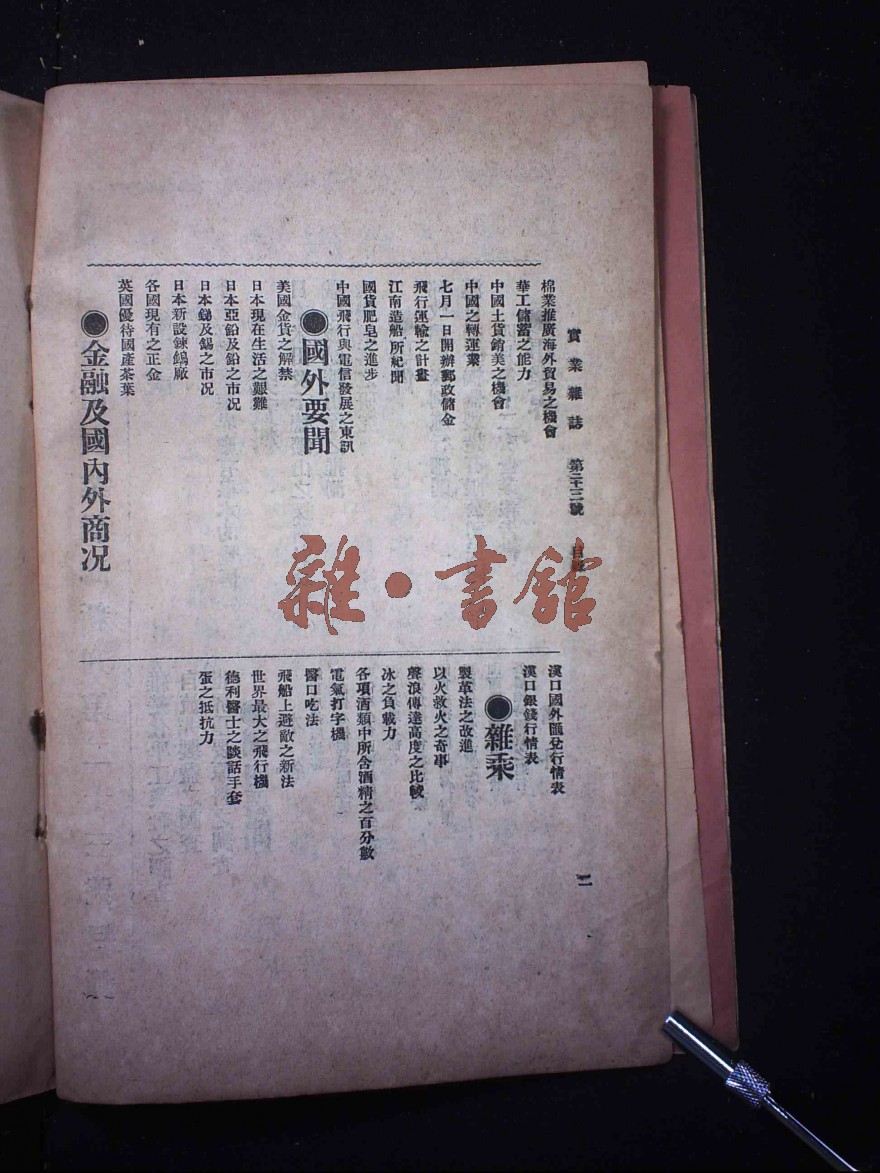 實業雜誌 第二十三號 目錄 二
棉業推廣海外貿易之機會
華工儲蓄之能力
中國土貨銷美之機會
中國之轉運業
七月一日開辦郵政儲金
飛行運輸之計畫
江南造船所紀聞
國貨肥皂之進步
中國飛行與電信發展之東訊
●國外要聞
美國金貨之解禁
日本現在生活之艱難
日本亞鉛及鉛之市况
日本銻及錫之市况
日本新設鍊鎢廠
各國現有之正金
英國優待國產茶葉
●金融及國內外商况
漢口國外匯兌行情表
漢口銀錢行情表
●雜乘
製革法之改進
以火救火之奇事
聲浪傳達高度之比較
冰之負載力
各項酒類中所含酒精之百分數
電氣打字機
醫口吃法
飛船上避敵之新法
世界最大之飛行機
德利醫士之談話手套
蛋之抵抗力
雜·書館